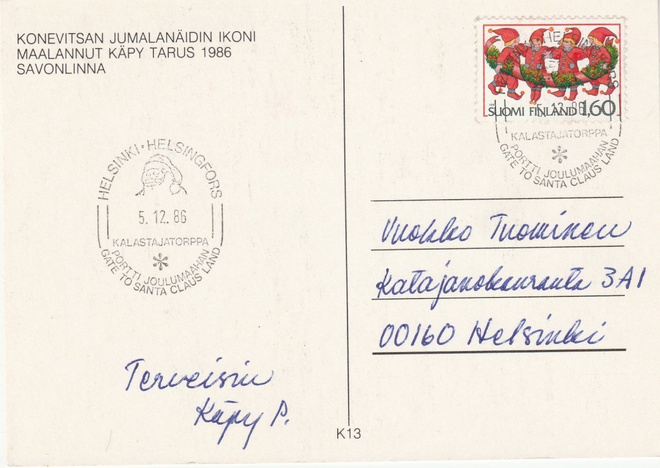 KONEVITSAN JUMALANÄIDIN IKONI
MAALANNUT KÄPY TARUS 1986
SAVONLINNA
SUOMI FINLAND 1,60
5.12.86
KALASTAJATORPPA
PORTTI JOULUMAAHAN
GATE TO SANTA CLAUS LAND
HELSINKI · HELSINGFORS
5. 12. 86
KALASTAJATORPPA
PORTTI JOULUMAAHAN
GATE TO SANTA CLAUS LAND
Vuokko Tuominen
Katajanokanranta 3A1
00160 Helsinki
Terveisin
Käpy P.
K13